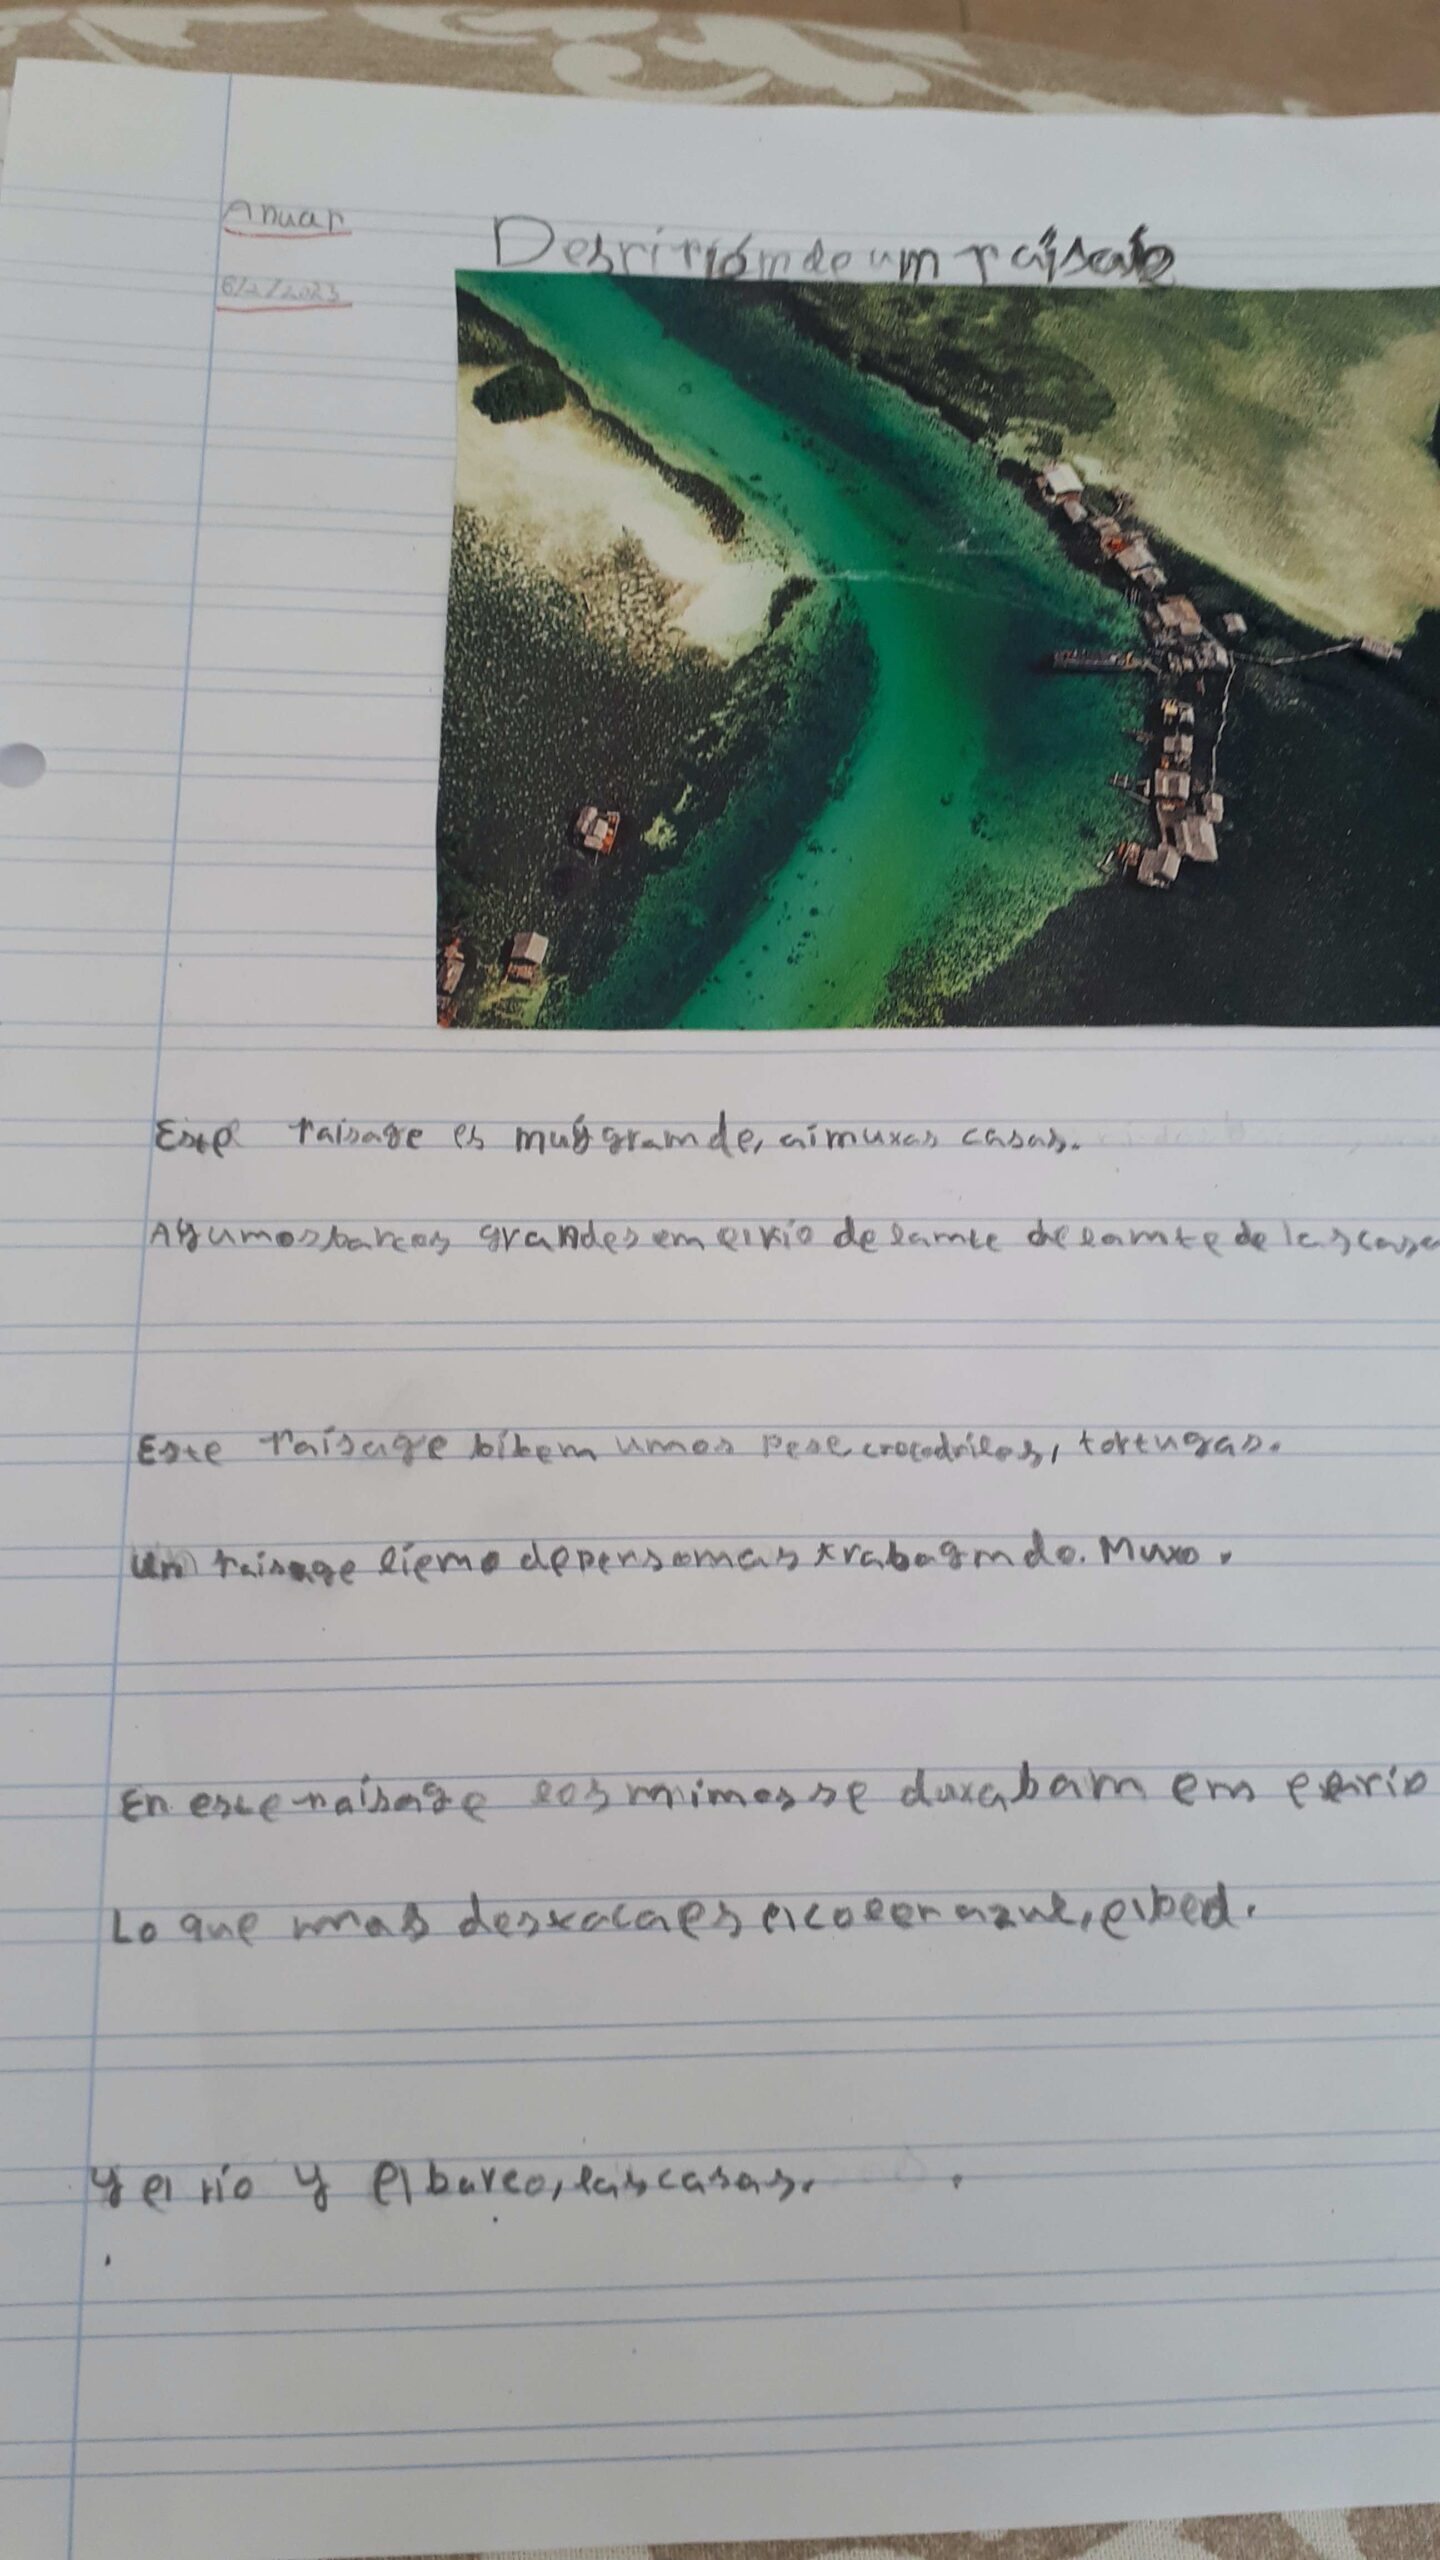 Anuar
6/2/2023
Desririóm de um raisaje
Este raisage es muy gramde, aimuxas casas.
Algumos barcos grandes em el río delamte delamte de las casa
Este raisage bibem umos pese, crocodrilos, tortugas.
Un raisage liemo de personas trabagmdo. Muxo.
En este raisage los mimos se duxabam em el río
Lo que mas destacaes el coler azul, el bed.
y el río y el barco, las casas.